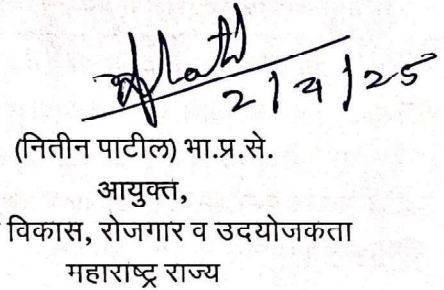 2/4/25
(नितीन पाटील) भा.प्र.से.
आयुक्त,
विकास, रोजगार व उदयोजकता
महाराष्ट्र राज्य